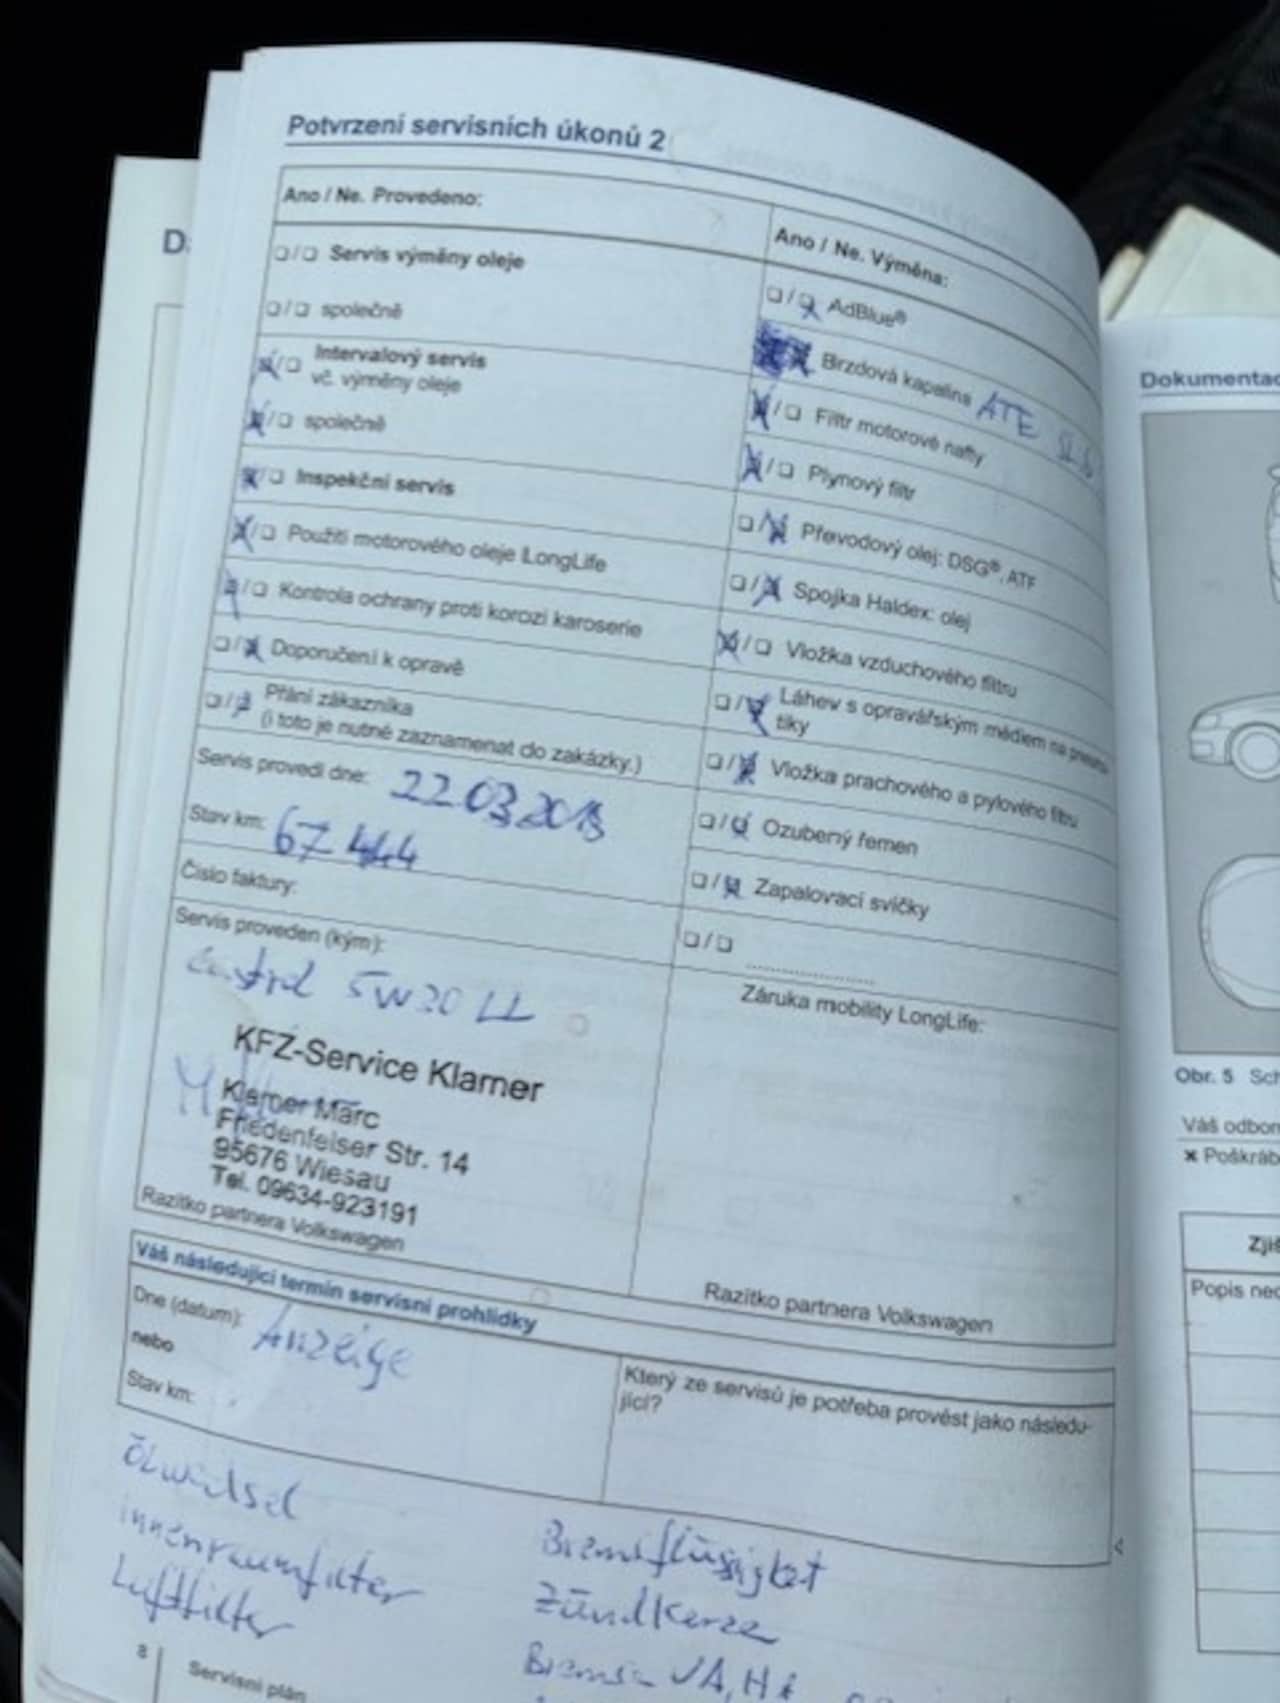 Potvrzení servisních úkonů 2
Ano / Ne. Provedeno:
❏/❏ Servis výměny oleje
❏/❏ společně
❏/❏ Intervalový servis
vč. výměny oleje
❏/❏ společně
❏/❏ Inspekční servis
❏/❏ Použití motorového oleje LongLife
❏/❏ Kontrola ochrany proti korozi karoserie
❏/❏ Doporučení k opravě
❏/❏ Přání zákazníka
(i toto je nutné zaznamenat do zakázky.)
Servis provedl dne: 22.03.2018
Stav km: 67 444
Číslo faktury:
Servis proveden (kým):
Castrol 5W30 LL
KFZ-Service Klamer
Klamer Marc
Friedenfelser Str. 14
95676 Wiesau
Tel. 09634-923191
Razítko partnera Volkswagen
Ano / Ne. Výměna:
❏/❏ AdBlue®
Brzdová kapalina ATE SL.6
❏/❏ Filtr motorové nafty
❏/❏ Plynový filtr
❏/❏ Převodový olej: DSG®, ATF
❏/❏ Spojka Haldex: olej
❏/❏ Vložka vzduchového filtru
❏/❏ Láhev s opravářským médiem na pneuma-
tiky
❏/❏ Vložka prachového a pylového filtru
❏/❏ Ozubený řemen
❏/❏ Zapalovací svíčky
❏/❏ ....................
Záruka mobility LongLife:
Razítko partnera Volkswagen
Váš následující termín servisní prohlídky
Dne (datum): Anzeige
nebo
Stav km:
Který ze servisů je potřeba provést jako následu-
jící?
Ölwechsel
innenraumfilter
Luftfilter
Bremsflüssigkeit
Zündkerze
Bremse VA, HA
8
Servisní plán
Dokumentac
Obr. 5 Sch
Váš odbor
✖ Poškráb
Zjiš
Popis ned